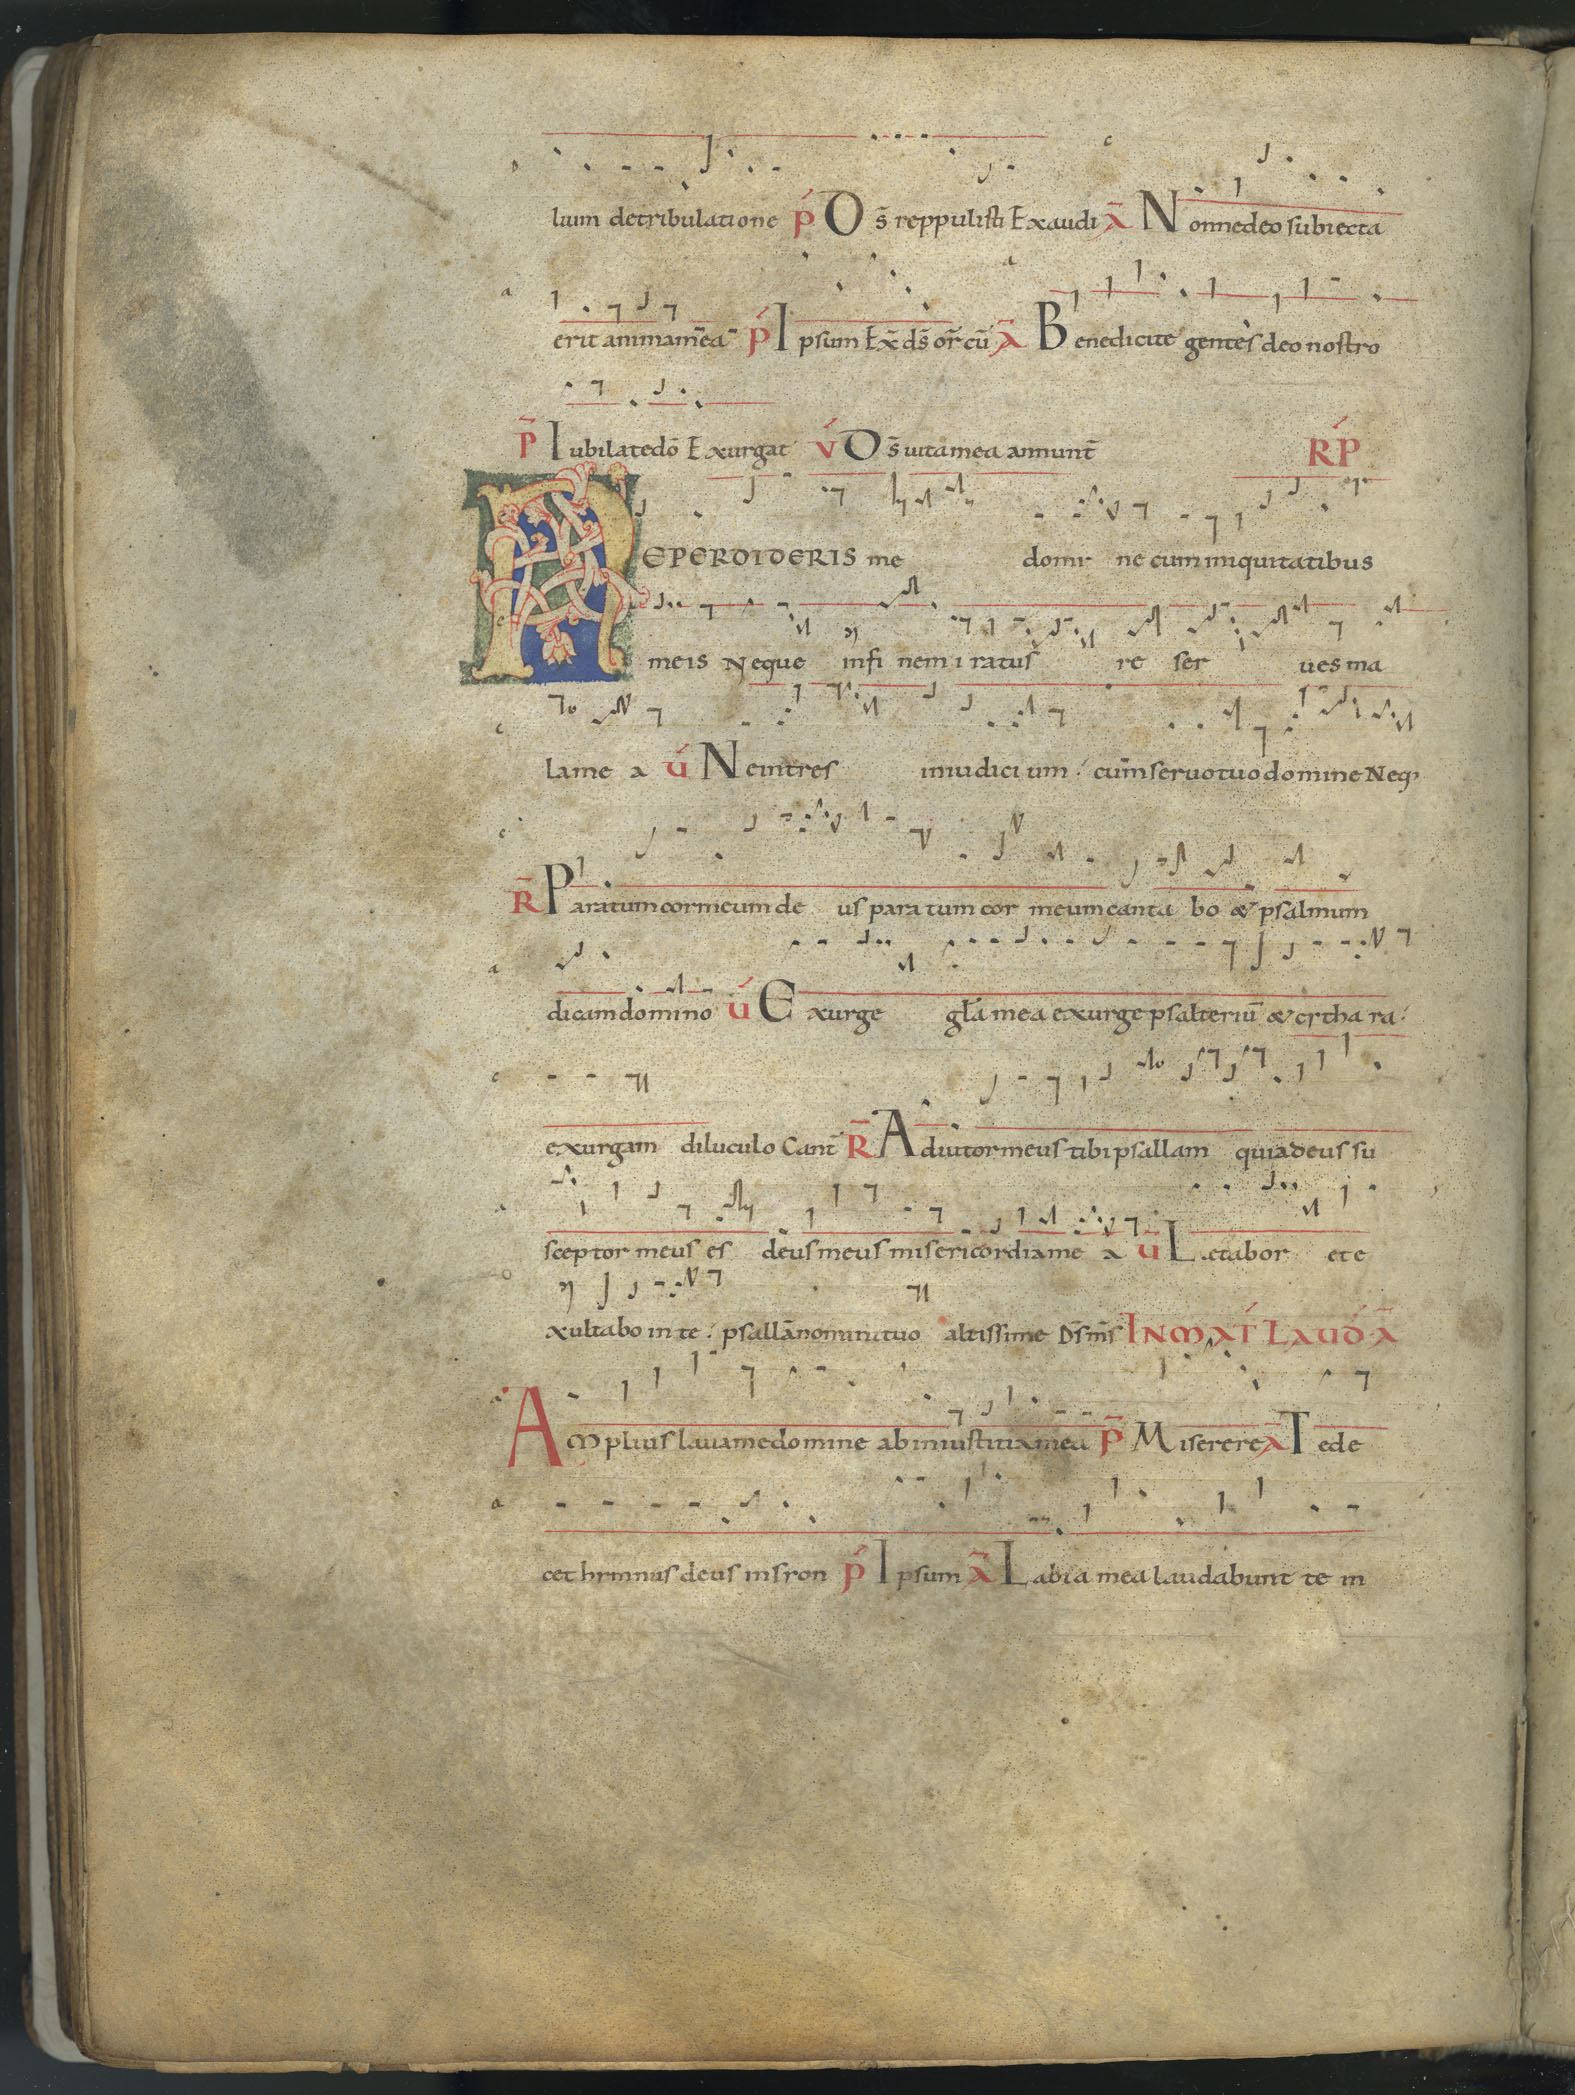 lium detribulatione p̄ Ds̄ reppulisti Exaudi Ā Nonnedeo subiecta
erit animam̄ea p̄ Ipsum Ex̄ ds̄ or̄ cū Ā Benedicite gentes deo nostro
P̄ Iubilatedō Exurgat v́ Ds̄ uitamea annunt̄ RP
NEPERDIDERIS me domi ne cum iniquitatibus
meis Neque infi nem i ratus re ser ues ma
la me a ú Ne intres iniudici um. cum̄ seruo tuo domine Neq,
R̄ Paratum cor meum de us paratum cor meum canta bo & psalmum
dicam domino ú Exurge gl̄a mea exurge psalteriū & cythara.
exurgam diluculo Cant̄ R̄ Adiutor meus tibi psallam quia deus su
sceptor meus es deus meus misericordia me a ú Lętabor et e
xultabo in te. psallā nomini tuo altissime Ds̄ m̄s IN MAT LAUD A
Amplius laua me domine ab iniustitia mea P̄ Miserere Ā Te de
cet hymnus deus in syon p̄ Ipsum Ā Labia mea laudabunt te in